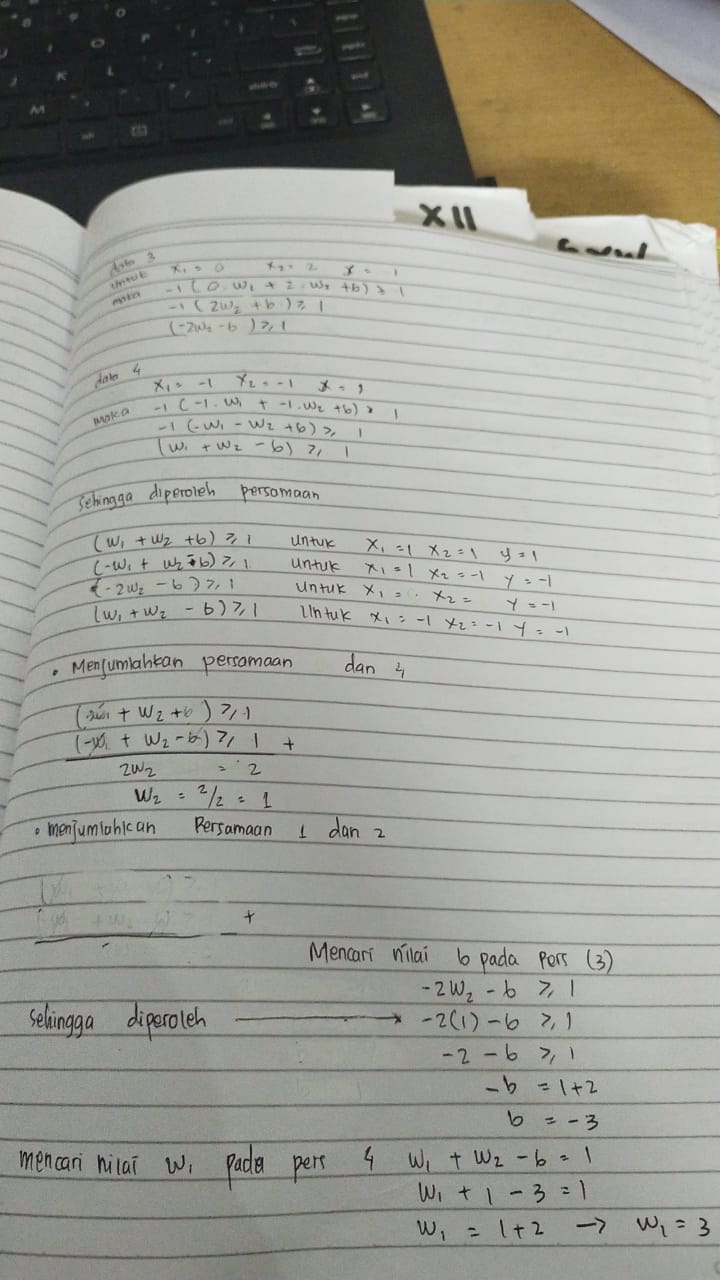 XII
data 3
untuk x₁ = 0 x₂ = 2 y = 1
maka -1 (0. w₁ + 2. w₂ + b) ≥ 1
-1 (2w₂ + b) ≥ 1
(-2w₂ - b) ≥ 1
data 4
x₁ = -1 x₂ = -1 y = 1
maka -1 (-1. w₁ + -1. w₂ + b) ≥ 1
-1 (-w₁ - w₂ + b) ≥ 1
(w₁ + w₂ - b) ≥ 1
Sehingga diperoleh persamaan
(w₁ + w₂ + b) ≥ 1 untuk x₁ = 1 x₂ = 1 y = 1
(-w₁ + w₂ - b) ≥ 1 untuk x₁ = 1 x₂ = -1 y = -1
(-2w₂ - b) ≥ 1 untuk x₁ = x₂ = y = -1
(w₁ + w₂ - b) ≥ 1 Untuk x₁ = -1 x₂ = -1 y = -1
• Menjumlahkan persamaan dan 4
+ w₂ + b) ≥ 1
(-w₁ + w₂ - b) ≥ 1 +
2w₂ = 2
w₂ = 2/2 = 1
• menjumlahkan Persamaan 1 dan 2
+
Mencari nilai b pada pers (3)
-2w₂ - b ≥ 1
Sehingga diperoleh → -2(1) - b ≥ 1
-2 - b ≥ 1
-b = 1+2
b = -3
mencari nilai w₁ pada pers 4 w₁ + w₂ - b = 1
w₁ + 1 - 3 = 1
w₁ = 1+2 → w₁ = 3